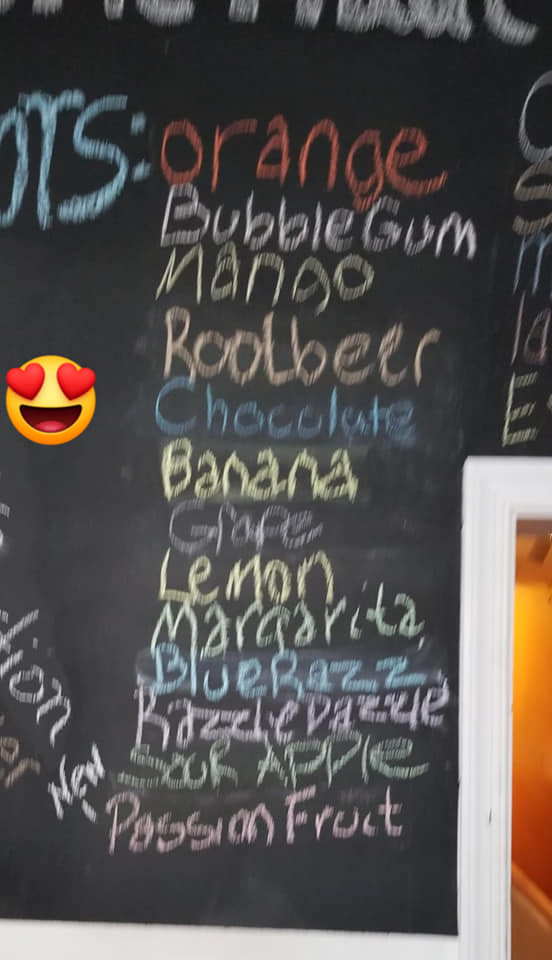 orange
BubbleGum
Mango
Rootbeer
Chocolate
Banana
Grape
Lemon
Margarita
BlueRazz
RazzleDazzle
Sour Apple
New
Passion Fruit